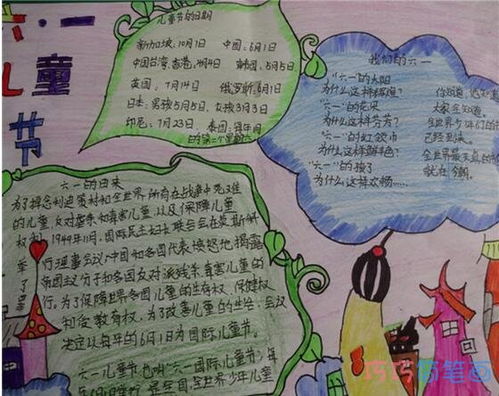 六·一
儿童
节
儿童节的日期
新加坡:10月1日 中国:6月1日
中国台湾、香港:4月4日 韩国:5月5日
英国:7月14日 俄罗斯:6月1日
日本:男孩5月5日、女孩3月3日
印尼:7月23日 泰国:每年1月
的第二个星期六
我们的六一
"六一"的太阳
为什么这样
"六一"的花朵 大家会知道
为什么这样芬芳?
"六一"的红领巾
为什么这样鲜艳?
"六一"的孩子
为什么这样欢畅……
六一的由来
为了悼念利迪策村和全世界所有在战争中死难
的儿童,反对虐杀和毒害儿童,以及保障儿童
权利,1949年11月,国际民主妇女联合会在莫斯科
举行理事会议,中国和各国代表愤怒地揭露
了帝国主义分子和各国反动派残杀、毒害儿童的
罪行。为了保障世界各国儿童的生存权、保健权
和受教育权,为了改善儿童的生活,会议
决定以每年的6月1日为国际儿童节。
六一儿童节也叫"六一国际儿童节",每年
6月1日举行,是全国、全世界少年儿童
巧巧简笔画